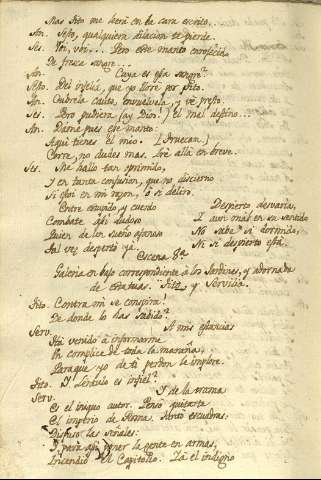 Mas Tito me leerá en la cara escrito...
An. Sesto, qualquiera dilacion te pierde.
Ses. Voi, voi... Pero este manto enrogecido
De fresca sangre...
An. Cuya es esa sangre?
Sesto. Del infeliz, que yo lloré por Tito.
An. Cubrela cauto, envuelvela, y ve presto.
Ses. Pero pudiera (ay Dios!) el mal destino...
An. Dame pues ese manto:
Aqui tienes el mio. [Truecan]
Corre, no dudes mas. Iré allá en breve.
Ses. Me hallo tan oprimido,
Y en tanta confusion, que no discierno
Si estoi en mi razon, ó si deliro.
Entre estupido, y cuerdo
Combate asi dudoso
Quien de un sueño afanoso
Tal vez despertó ya:
Despierto desvaría,
I aun mal en su sentido
No sabe si dormido,
Ni si despierto está.
Escena 8ª
Galeria en bajo correspondiente á los Jardines, y adornada
de estatuas. Tito y Servilia.
Tito. Contra mi se conspira!
De donde lo has sabido?
Serv. A mis estancias
Ha venido á informarme
Un complice de toda la maraña,
Paraque yo de ti perdon le implore.
Tito. I Léntulo es infiel?
Serv. Y de la trama
Es el iniquo autor. Pensó quitarte
El imperio de Roma. Juntó escuadras:
Dispuso las señales:
I para poner la gente en armas,
Incendió el Capitolio. Ya el indigno